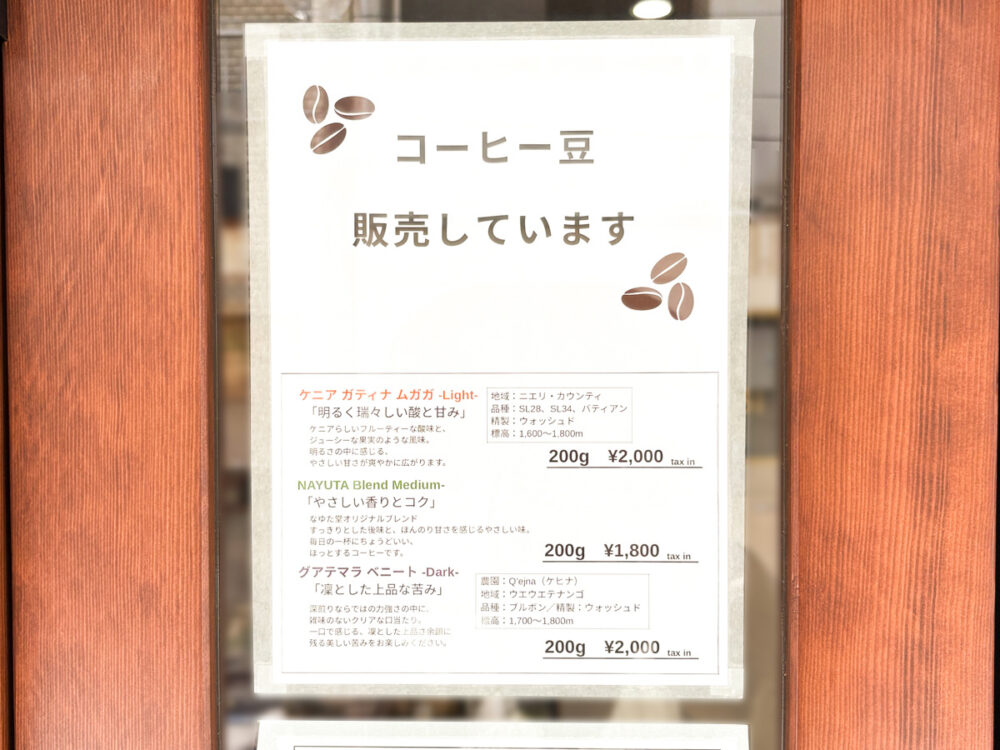 コーヒー豆
販売しています
ケニア ガティナ ムガガ -Light-
「明るく瑞々しい酸と甘み」
ケニアらしいフルーティーな酸味と、
ジューシーな果実のような風味。
明るさの中に感じる、
やさしい甘さが爽やかに広がります。
地域：ニエリ・カウンティ
品種：SL28、SL34、バティアン
精製：ウォッシュド
標高：1,600〜1,800m
200g ¥2,000 tax in
NAYUTA Blend Medium-
「やさしい香りとコク」
なゆた堂オリジナルブレンド
すっきりとした後味と、ほんのり甘さを感じるやさしい味。
毎日の一杯にちょうどいい、
ほっとするコーヒーです。
200g ¥1,800 tax in
グアテマラ ベニート -Dark-
「凜とした上品な苦み」
深煎りならではの力強さの中に、
雑味のないクリアな口当たり。
一口で感じる、凜とした上品さ余韻に
残る美しい苦みをお楽しみください。
農園：Q'ejna（ケヒナ）
地域：ウエウエテナンゴ
品種：ブルボン／精製：ウォッシュド
標高：1,700〜1,800m
200g ¥2,000 tax in